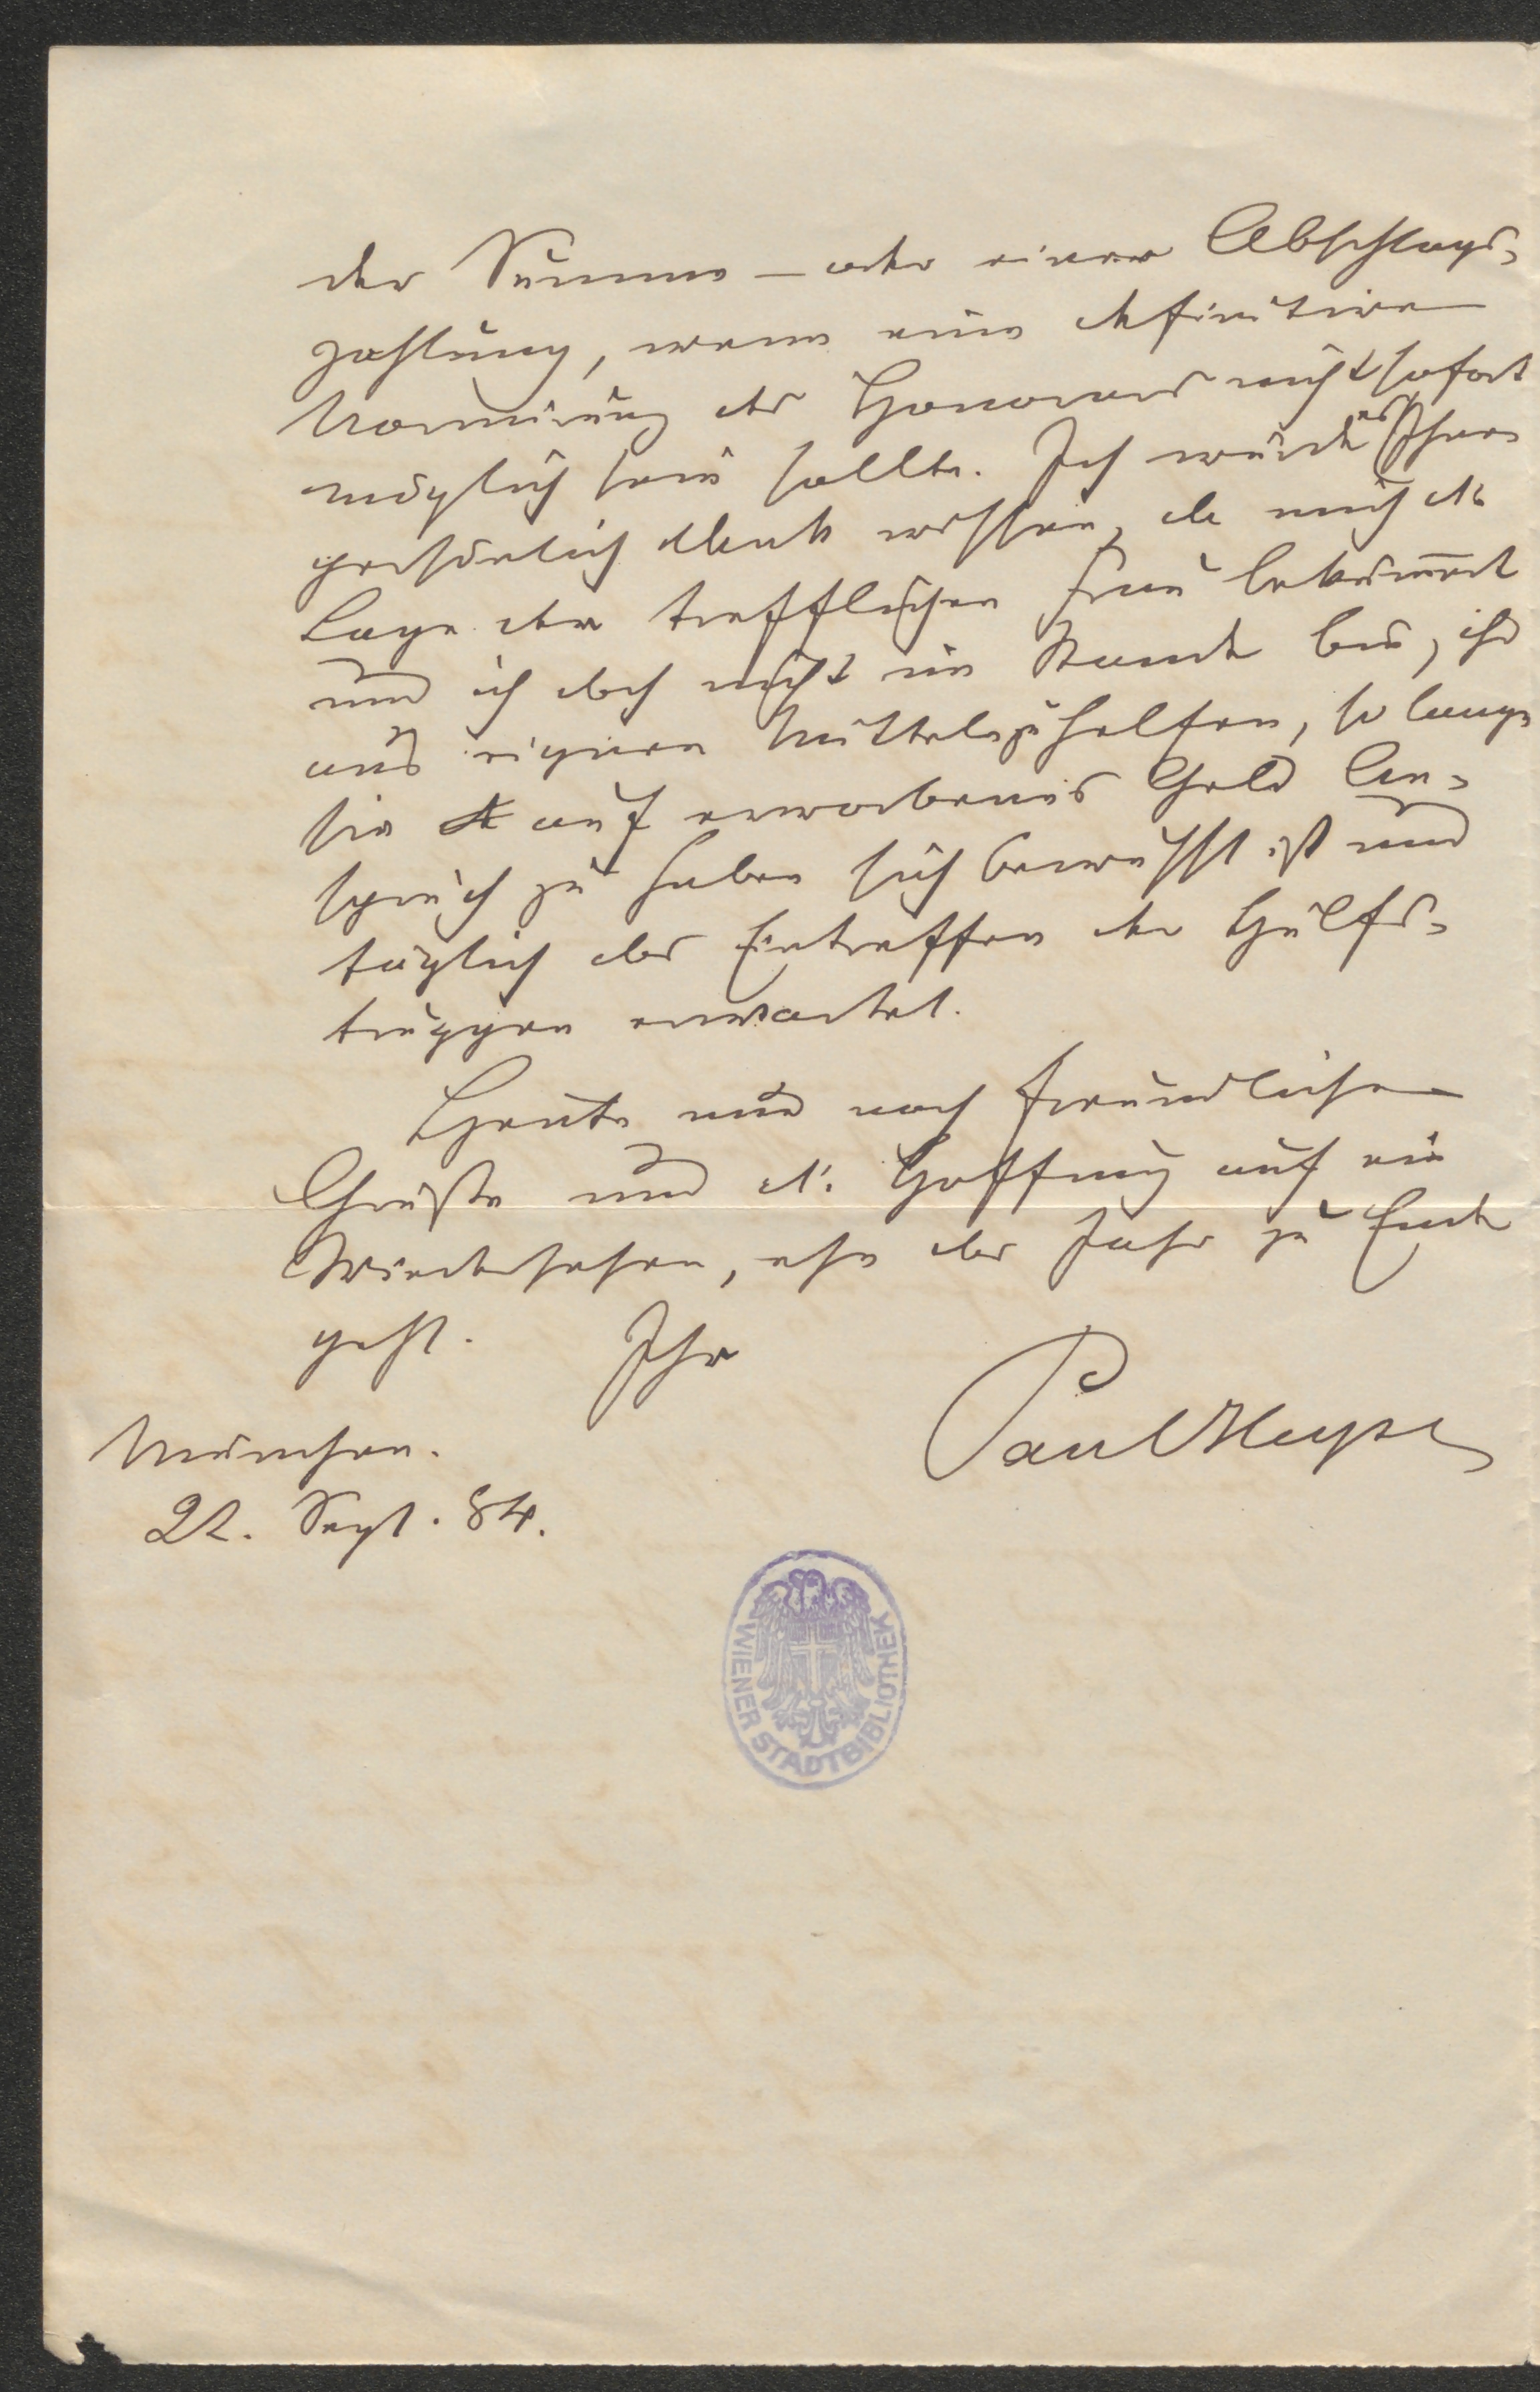 der Summe – oder einer Abschlags-
zahlung, wenn eine definitive
Normirung des Honorars nicht sofort
möglich sein sollte. Ich würde es Ihnen
persönlich Dank wissen, da mich die
Lage der trefflichen Frau bekümert
und ich doch nicht im Stande bin, ihr
aus eignen Mitteln zu helfen, so lange
sie auf erworbenes Geld An-
spruch zu haben sich bewußt ist und
täglich das Eintreffen der Hülfs-
truppen erwartet.
Heute nur noch freundliche
Grüße und die Hoffnung auf ein
Wiedersehen, ehe das Jahr zu Ende
geht. Ihr
Paul Heyse
München.
22. Sept. 84.
WIENER STADTBIBLIOTHEK